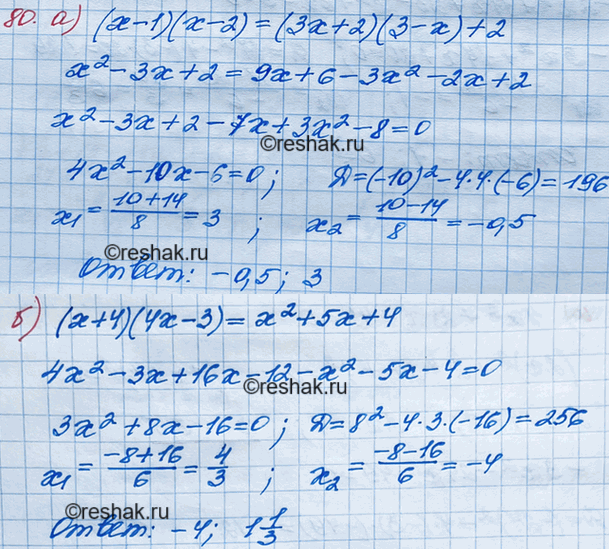 80. а) (x-1)(x-2)=(3x+2)(3-x)+2
x²-3x+2=9x+6-3x²-2x+2
x²-3x+2-7x+3x²-8=0
©reshak.ru
4x²-10x-6=0; Д=(-10)²-4·4·(-6)=196
x₁=(10+14)/8=3; x₂=(10-14)/8=-0,5
©reshak.ru
Ответ: -0,5; 3
б) (x+4)(4x-3)=x²+5x+4
4x²-3x+16x-12-x²-5x-4=0
©reshak.ru
3x²+8x-16=0; Д=8²-4·3·(-16)=256
x₁=(-8+16)/6=4/3; x₂=(-8-16)/6=-4
©reshak.ru
Ответ: -4; 1 1/3